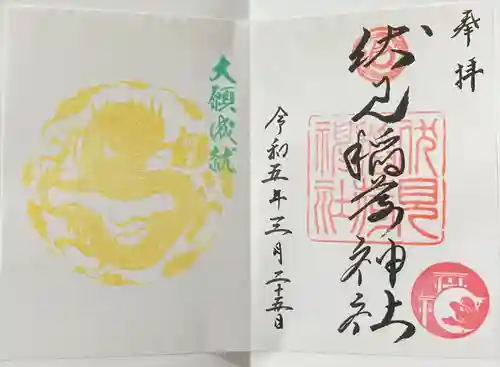 奉拝
伏見稲荷神社
令和五年三月二十五日
大願成就
伏見
稲荷
神社